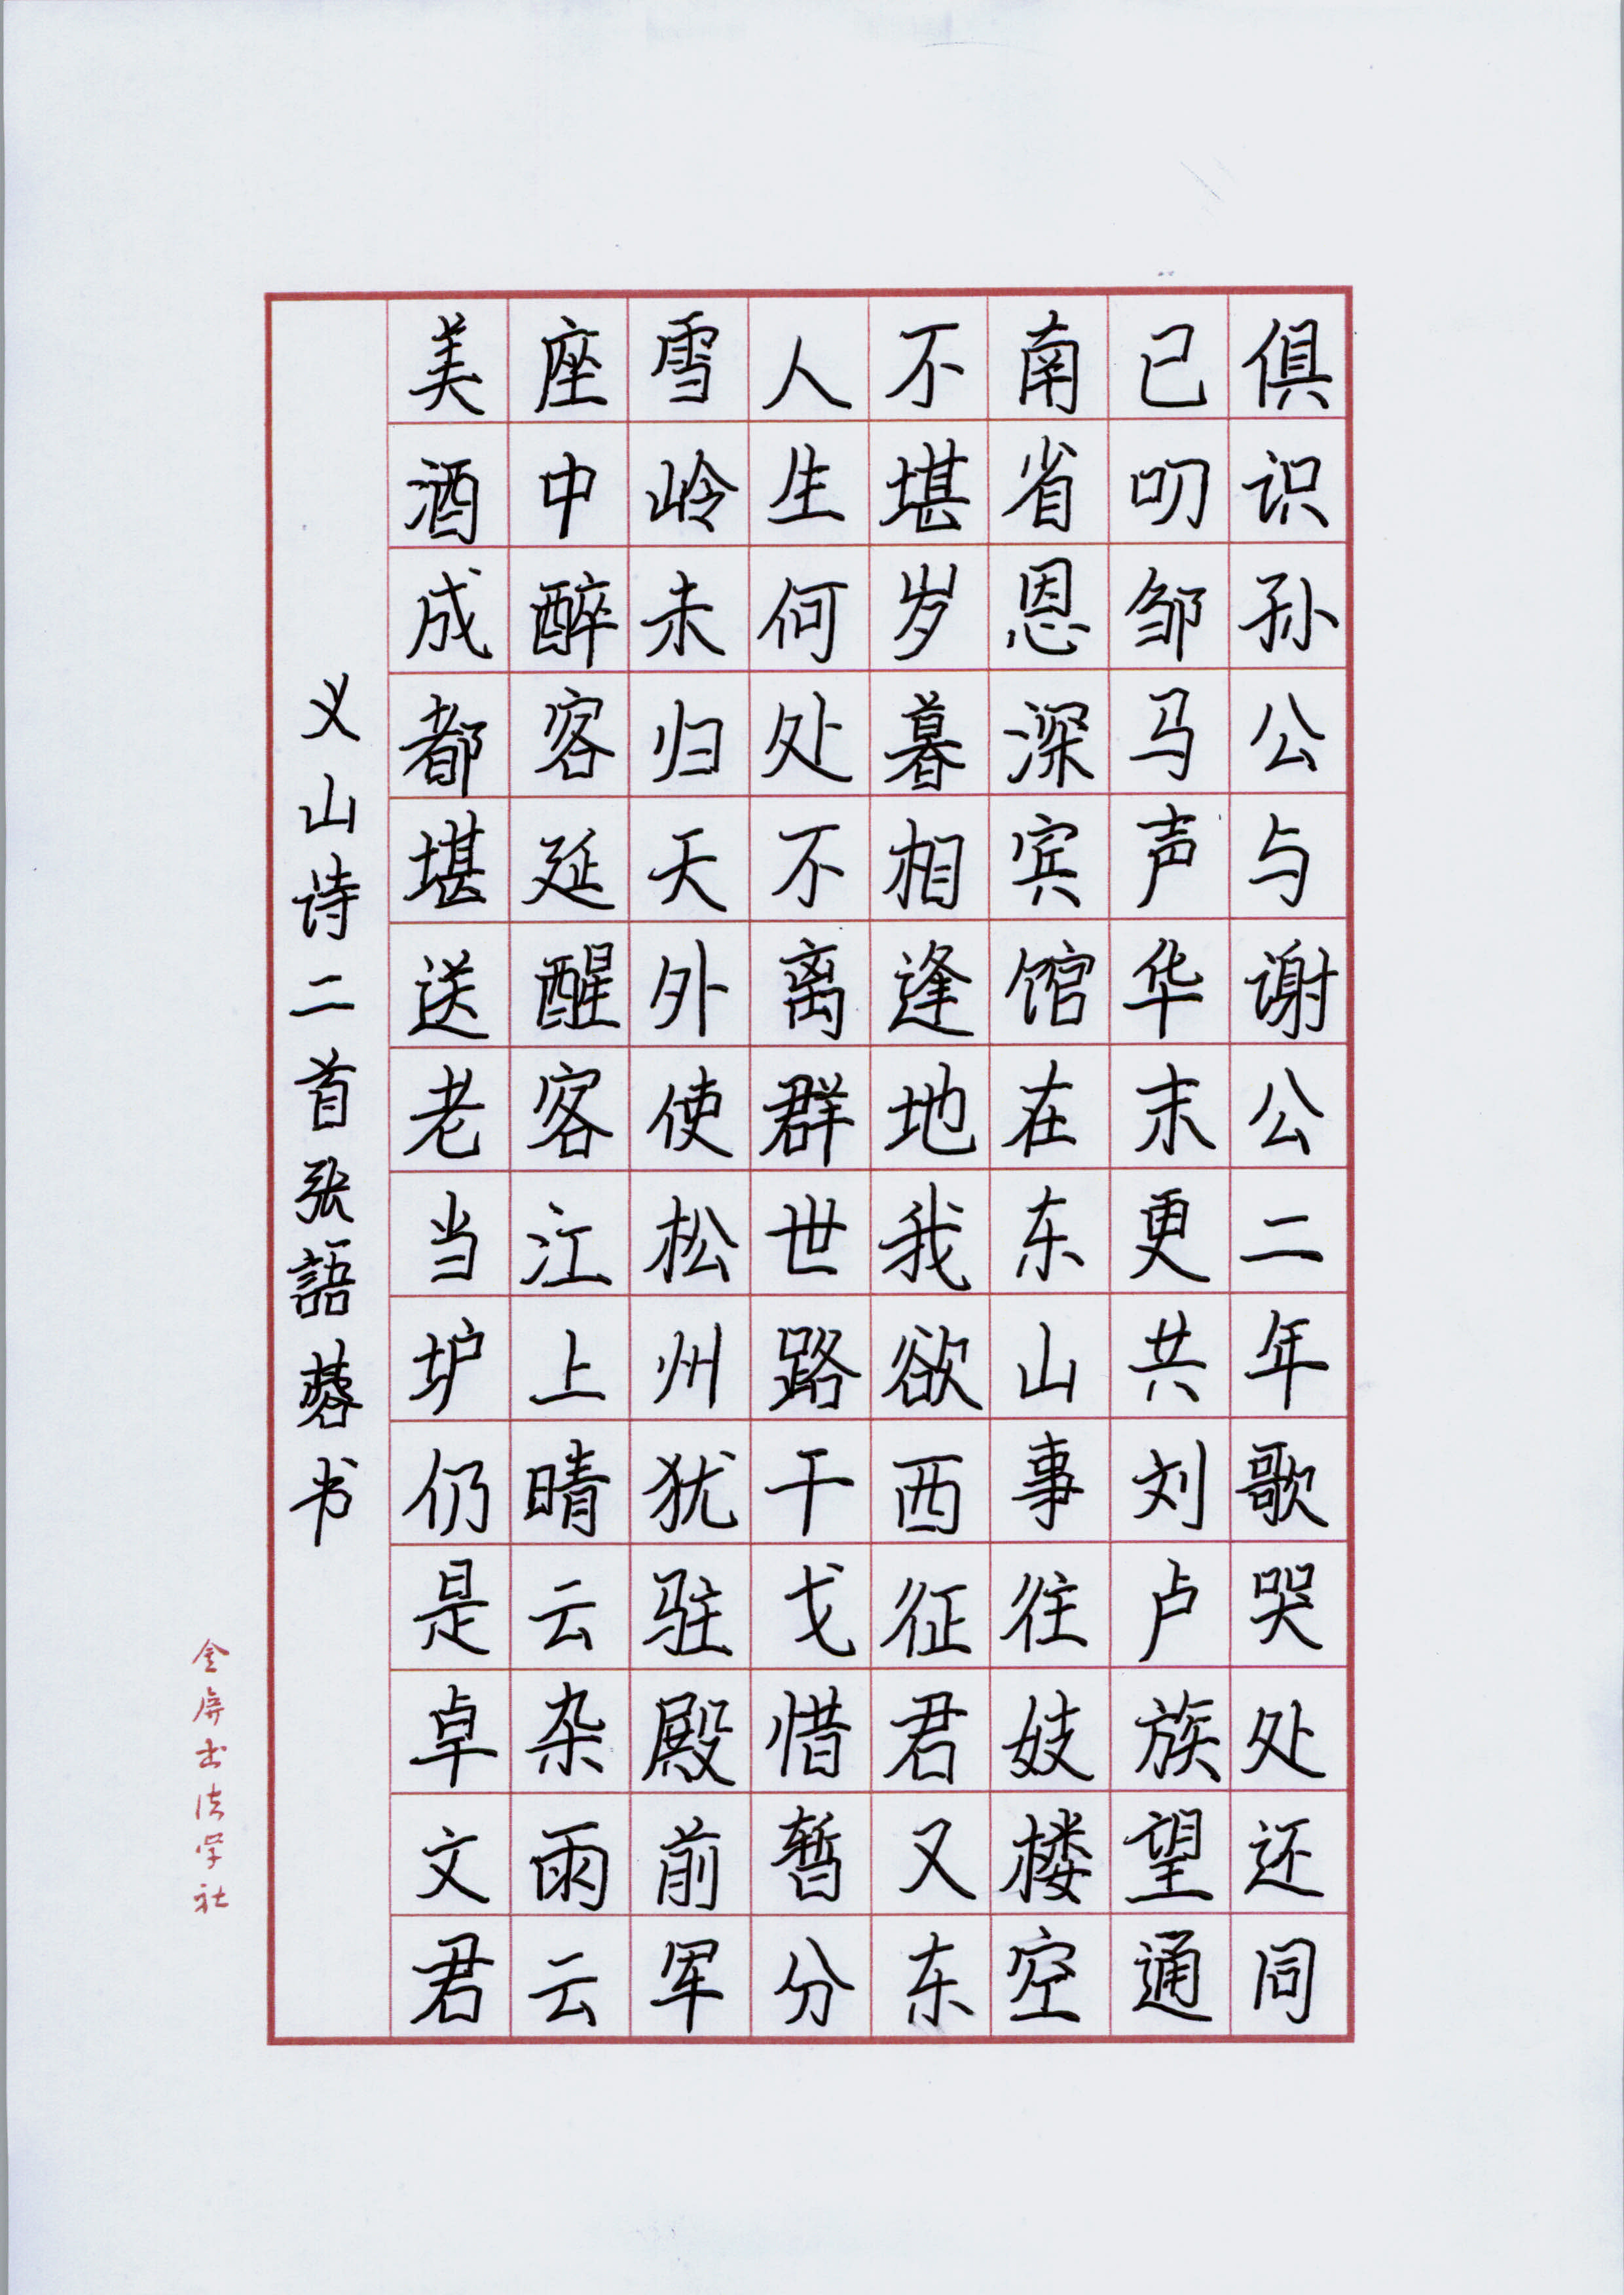 俱识孙公与谢公二年歌哭处还同
已叨邹马声华末更共刘卢族望通
南省恩深宾馆在东山事往妓楼空
不堪岁暮相逢地我欲西征君又东
人生何处不离群世路干戈惜暂分
雪岭未归天外使松州犹驻殿前军
座中醉客延醒客江上晴云杂雨云
美酒成都堪送老当垆仍是卓文君
义山诗二首张語蓉书
金屏书法学社